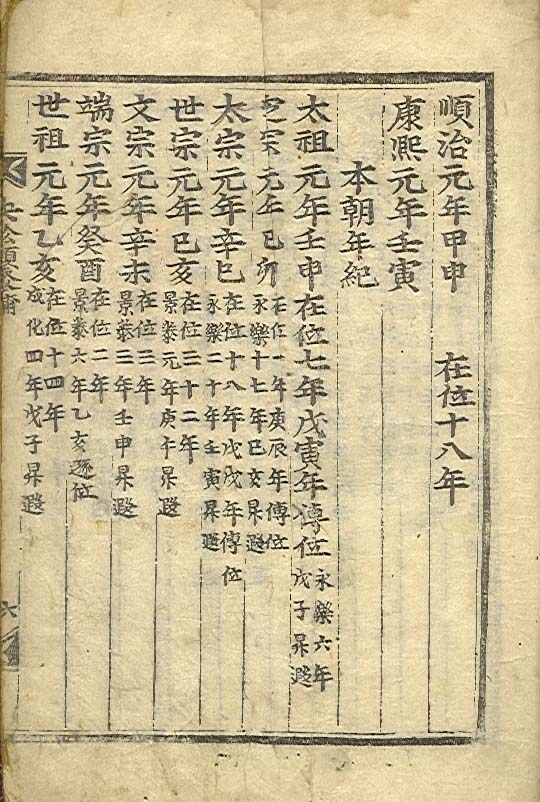 順治元年甲申 在位十八年
康熙元年壬寅
本朝年紀
太祖元年壬申在位七年戊寅年傳位
永樂六年
戊子昇遐
定宗元年己卯
在位一年庚辰年傳位
永樂十七年己亥昇遐
太宗元年辛巳
在位十八年戊戌年傳位
永樂二十年壬寅昇遐
世宗元年己亥
在位三十二年
景泰元年庚午昇遐
文宗元年辛未
在位三年
景泰三年壬申昇遐
端宗元年癸酉
在位二年
景泰六年乙亥遜位
世祖元年乙亥
在位十四年
成化四年戊子昇遐
六